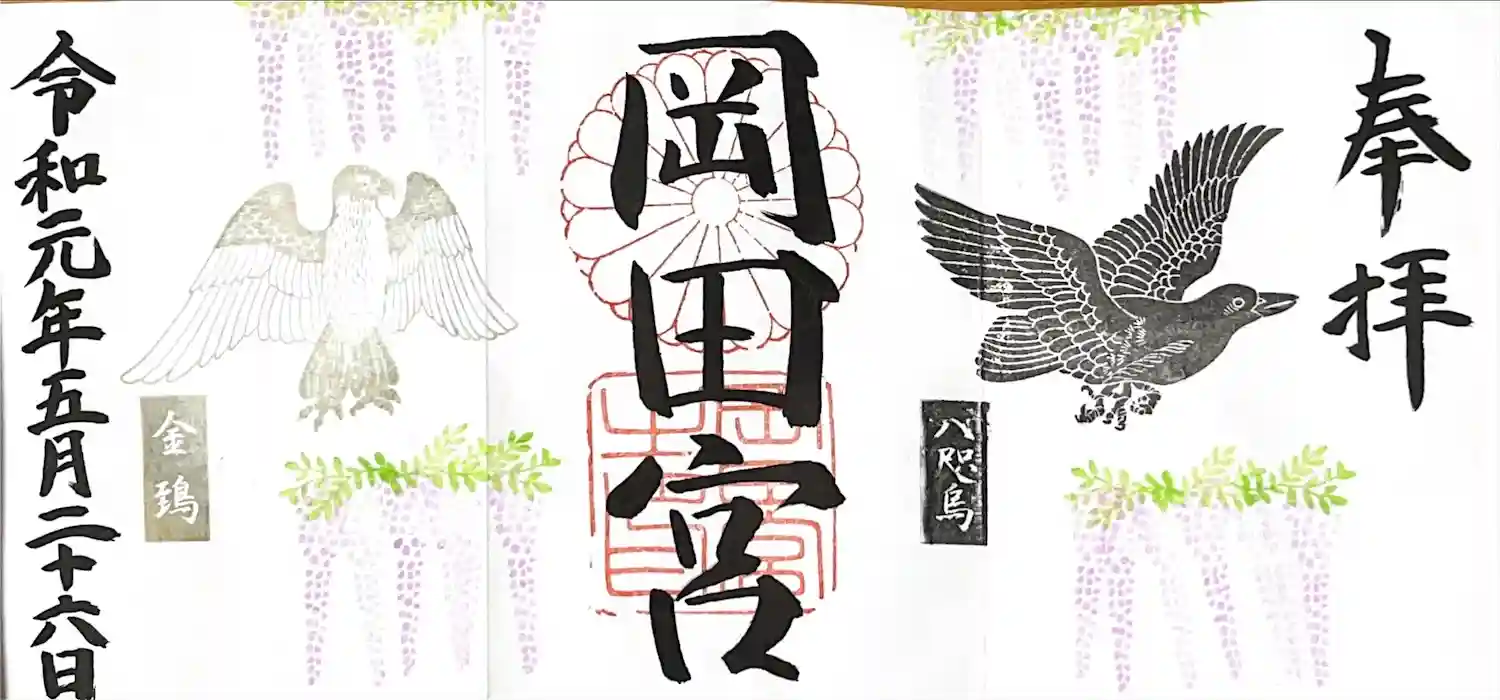 奉拝
八咫烏
岡田宮
金鵄
令和元年五月二十六日